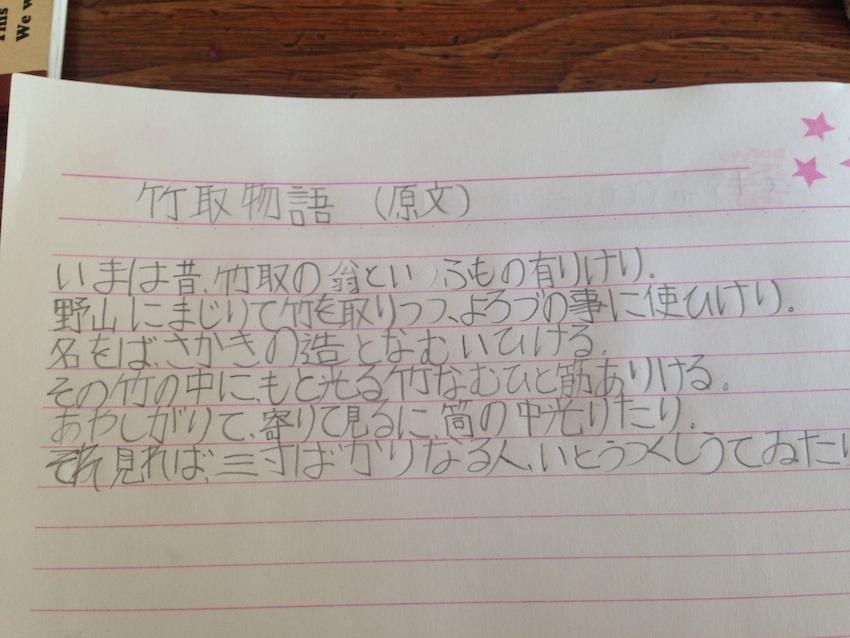 This
We w
竹取物語 (原文)
いまは昔、竹取の翁といふもの有りけり.
野山にまじりて竹を取りつつ、よろづの事に使ひけり。
名をば、さかきの造となむいひける。
その竹の中に、もと光る竹なむひと筋ありける。
あやしがりて、寄りて見るに、筒の中光りたり.
それ見れば、三寸ばかりなる人、いとうつくしうてゐたり